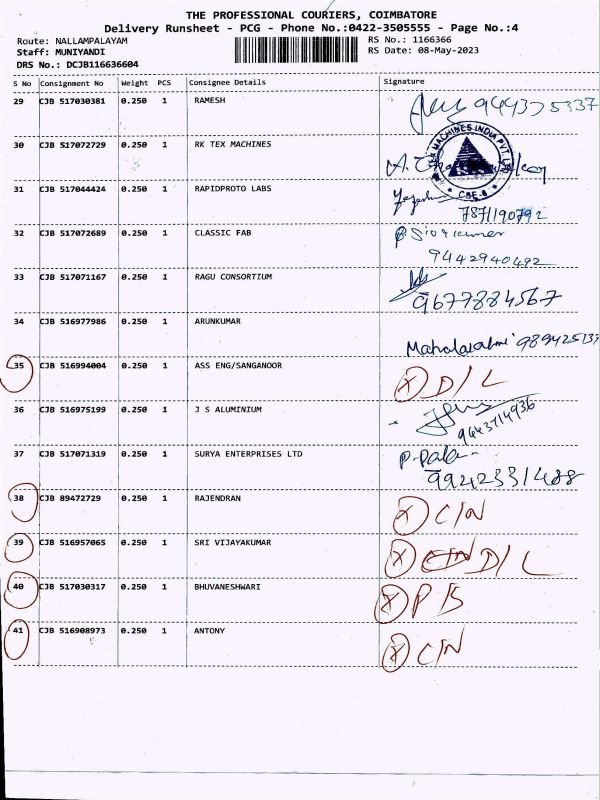 THE PROFESSIONAL COURIERS, COIMBATORE
Delivery Runsheet - PCG - Phone No.:0422-3505555 - Page No.:4
Route: NALLAMPALAYAM RS No.: 1166366
Staff: MUNIYANDI RS Date: 08-May-2023
DRS No.: DCJB116636604
S No Consignment No Weight PCS Consignee Details Signature
29 CJB 517030381 0.250 1 RAMESH
30 CJB 517072729 0.250 1 RK TEX MACHINES
TEX MACHINES INDIA PVT. LTD
CBE-6
31 CJB 517044424 0.250 1 RAPIDPROTO LABS
7871190792
32 CJB 517072689 0.250 1 CLASSIC FAB
9442940492
33 CJB 517071167 0.250 1 RAGU CONSORTIUM
9677884567
34 CJB 516977986 0.250 1 ARUNKUMAR
35 CJB 516994004 0.250 1 ASS ENG/SANGANOOR X D/L
36 CJB 516975199 0.250 1 J S ALUMINIUM
9443714936
37 CJB 517071319 0.250 1 SURYA ENTERPRISES LTD
9942331488
38 CJB 89472729 0.250 1 RAJENDRAN X C/N
39 CJB 516957065 0.250 1 SRI VIJAYAKUMAR X D/L
40 CJB 517030317 0.250 1 BHUVANESHWARI X
41 CJB 516908973 0.250 1 ANTONY X C/N